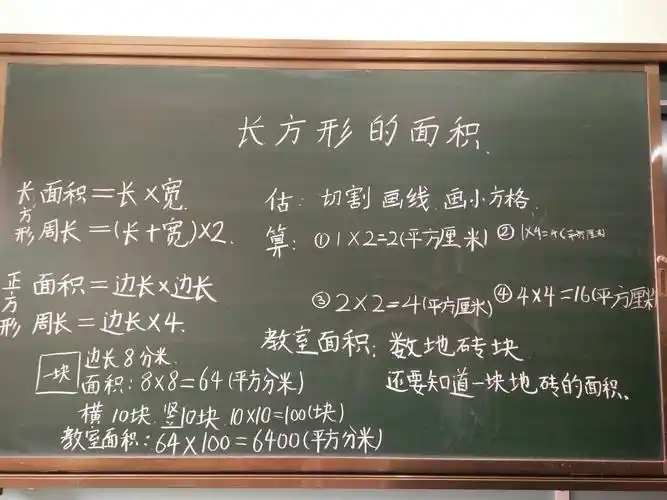 长方形的面积.
长方形 面积=长×宽.
周长=(长+宽)×2.
正方形 面积=边长×边长
周长=边长×4.
一块 边长8分米.
面积:8×8=64(平方分米)
横10块.竖10块.10×10=100(块)
教室面积:64×100=6400(平方分米)
估:切割 画线 画小方格.
算:①1×2=2(平方厘米) ②1×4=4(平方厘米)
③2×2=4(平方厘米) ④4×4=16(平方厘米)
教室面积:数地砖块
还要知道一块地砖的面积。